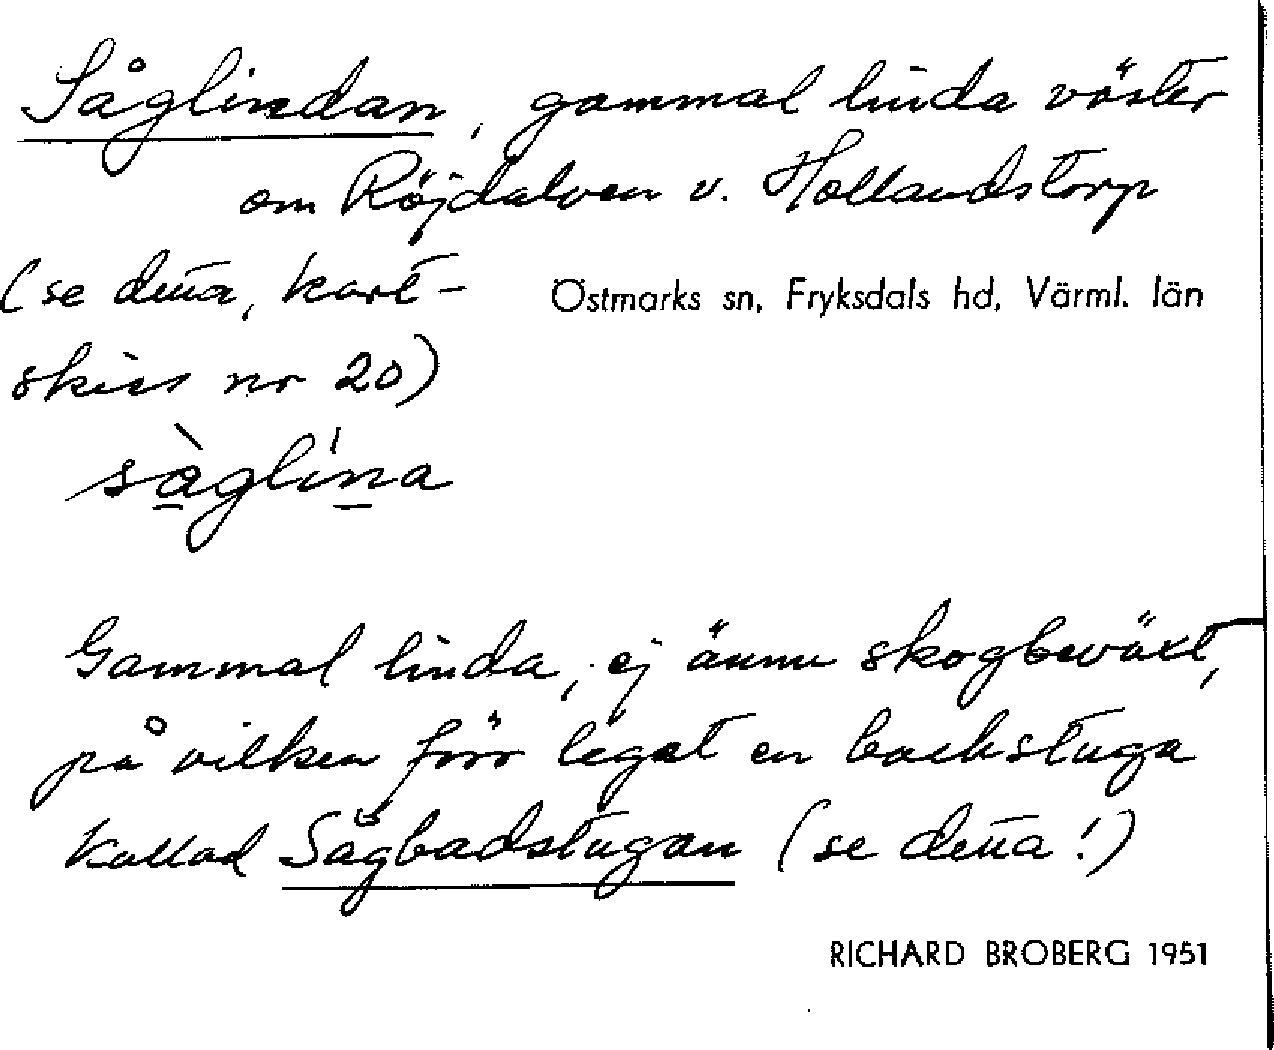 Såglindan, gammal linda väster
om Röjdalven v. Hollandstorp
(se detta, kart-
skiss nr 20)
Östmarks sn, Fryksdals hd, Värml. län
sàglína
Gammal linda, ej ännu skogbeväxt,
på vilken förr legat en backstuga
kallad Sågbadstugan (se detta!)
RICHARD BROBERG 1951